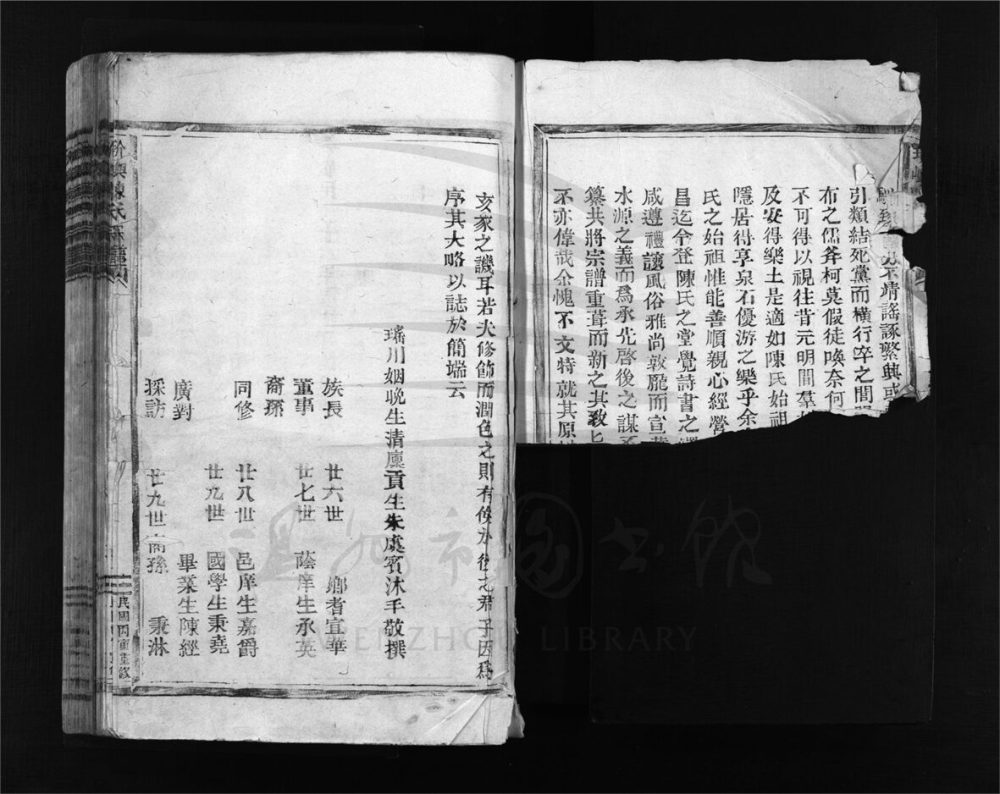 靖謠諑繁興或
引類結死黨而橫行卒之間
布之儒斧柯莫假徒喚奈何
不可得以視往昔元明間羣
及安得樂土是適如陳氏始祖
隱居得享泉石優游之樂乎余
氏之始祖惟能善順親心經營
昌迄今登陳氏之堂覺詩書之
咸遵禮讓風俗雅尚敦龐而宣
水源之義而爲承先啓後之謀
纂共將宗譜重葺而新之其致
不亦偉哉余愧不文特就其原
亥豕之譏耳若夫修飾而潤色之則有俟於後之君子因爲
序其大略以誌於簡端云
璚川姻晚生清廩貢生朱處賓沐手敬撰
族長 廿六世 鄉耆宜華
董事 廿七世 蔭庠生永英
裔孫
同修 廿八世 邑庠生嘉爵
廿九世 國學生秉堯
廣對 畢業生陳經
採訪 廿九世裔孫 秉淋
陳氏宗譜
民國丙寅重修
溫州市圖書館
WENZHOU LIBRARY